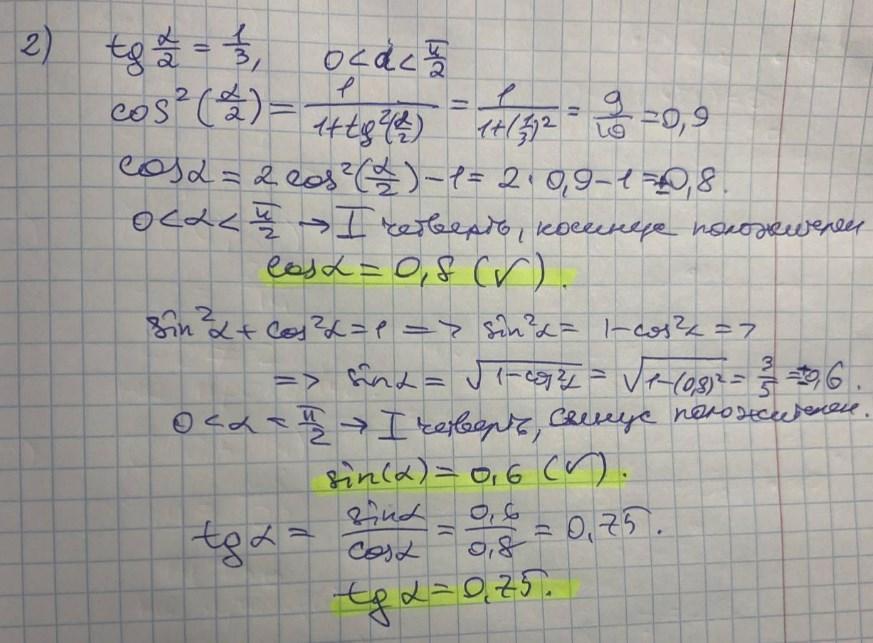 2) tg α/2 = 1/3, 0 < α < π/2
cos²(α/2) = 1/(1+tg²(α/2)) = 1/(1+(1/3)²) = 9/10 = 0,9
cosα = 2 cos²(α/2) − 1 = 2 · 0,9 − 1 = ±0,8.
0 < α < π/2 → I четверть, косинус положителен
cosα = 0,8 (√).
sin²α + cos²α = 1 => sin²α = 1 − cos²α =>
=> sinα = √(1−cos²α) = √(1−(0,8)²) = 3/5 = ±0,6.
0 < α < π/2 → I четверть, синус положителен.
sin(α) = 0,6 (√).
tg α = sinα/cosα = 0,6/0,8 = 0,75.
tg α = 0,75.